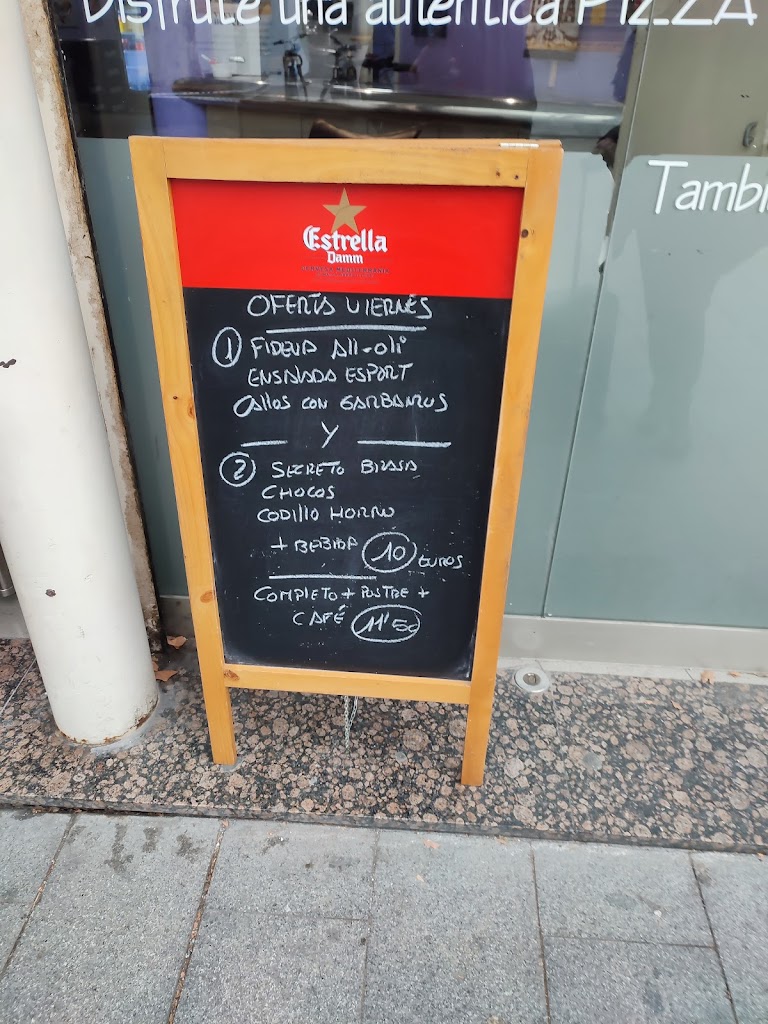 Disfrute una autentica PIZZA
Tambi
Estrella
Damm
OFERTA VIERNES
1 FIDEUA All-oli
ENSALADA ESPORT
CALLOS CON GARBANZOS
Y
2 SECRETO BRASA
CHOCOS
CODILLO HORNO
+ BEBIDA 10 EUROS
COMPLETO + POSTRE +
CAFÉ 11'50